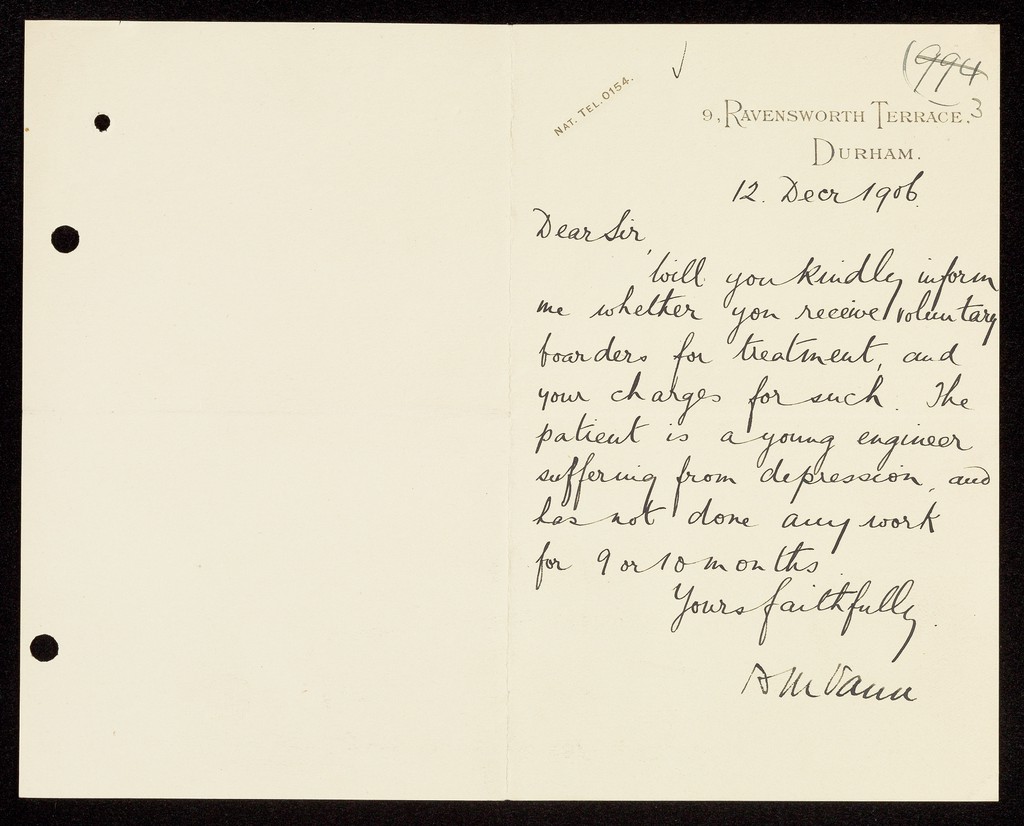 1994
3
NAT. TEL. 0154.
9, RAVENSWORTH TERRACE.
DURHAM.
12. Decr 1906.
Dear Sir,
Will you kindly inform
me whether you receive voluntary
boarders for treatment, and
your charges for such. The
patient is a young engineer
suffering from depression, and
has not done any work
for 9 or 10 months.
Yours faithfully.
A M Vann